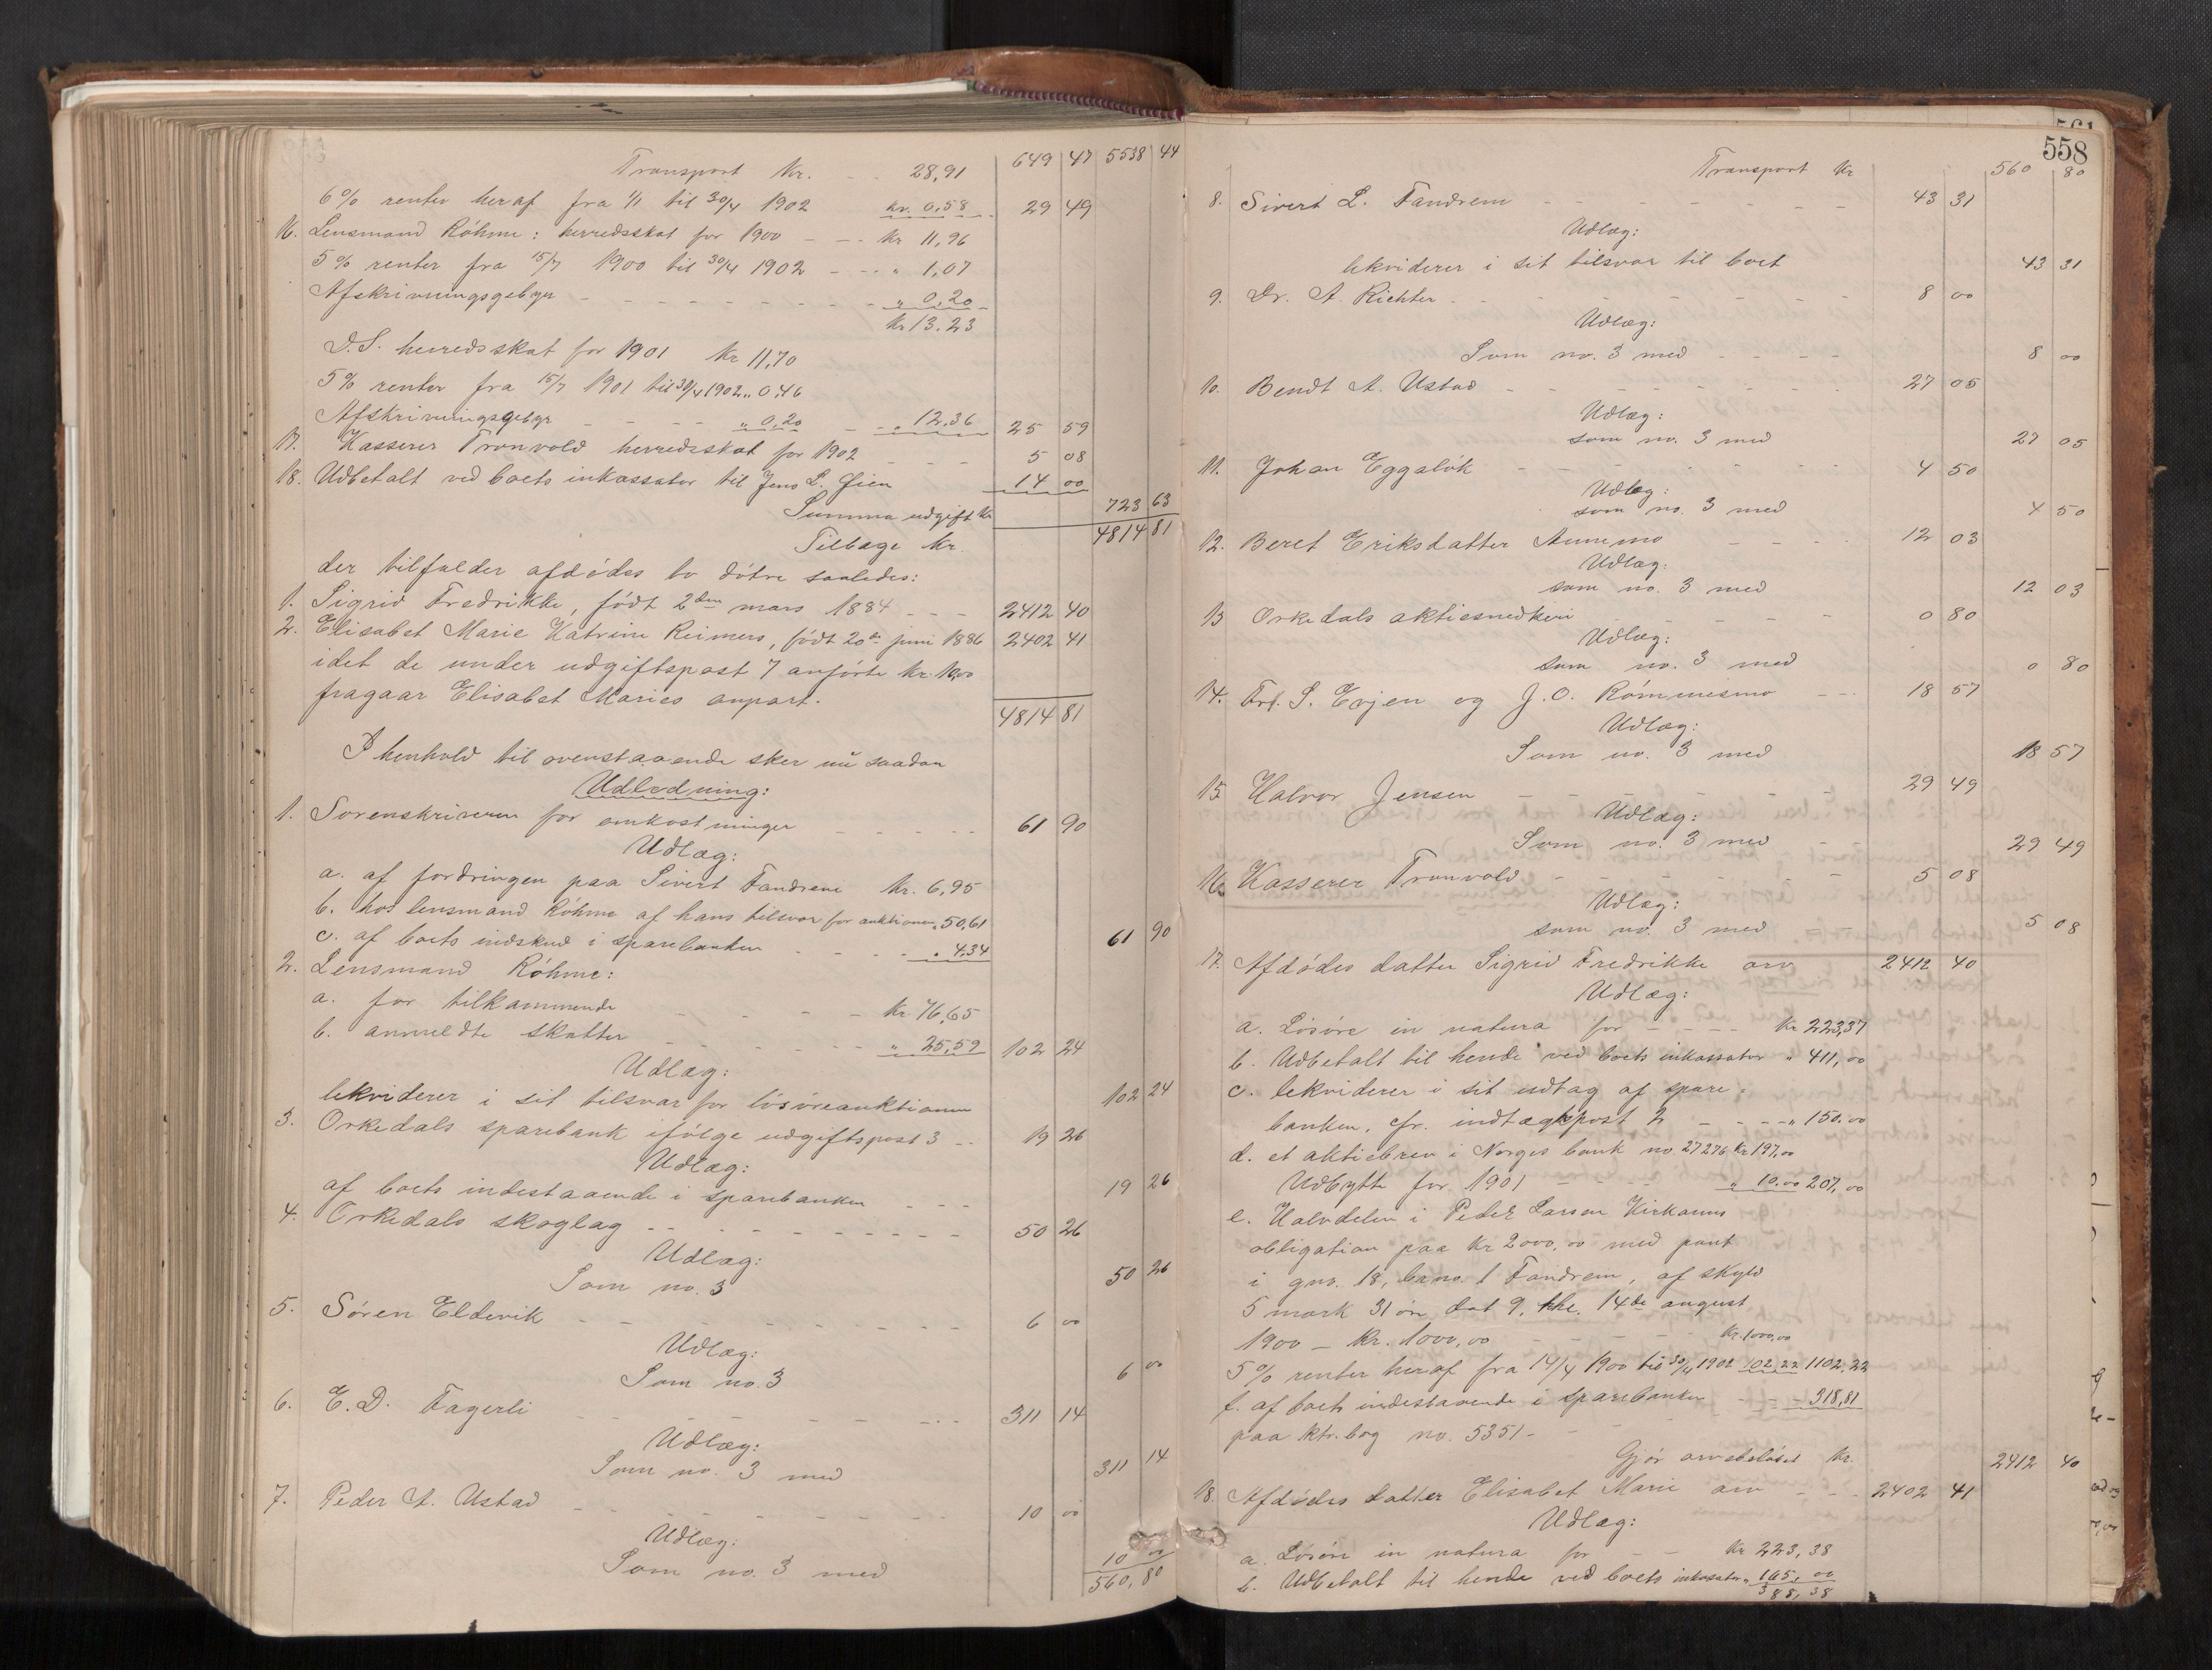 Transport Kr. - - 28,91 649 47 5538 44
6% renter heraf fra 1/1 til 30/4 1902 kr. 0,58 29 49
16. Lensmand Röhme: herredsskat for 1900 - - - Kr 11,96
5% renter fra 15/7 1900 til 30/4 1902 - - - " 1,07
Afskrivningsgebyr - - - - - - - - - " 0,20
Kr 13.23
D.S. herredsskat for 1901 Kr 11,70
5% renter fra 15/7 1901 til 30/4 1902 " 0,46
Afskrivningsgebyr - - - - " 0,20 - - " 12,36 25 59
17. Kasserer Tronvold herredsskat for 1902 - - - 5 08
18. Udbetalt ved boets inkassator til Jens L. Gien 14 00
Summa udgift Kr 723 63
Tilbage Kr. 4814 81
der tilfalder afdødes to døtre saaledes:
1. Sigrid Fredrikke, født 2den mars 1884 - - - 2412 40
2. Elisabet Marie Katrine Reimers, født 20de juni 1886 2402 41
idet de under udgiftspost 7 anførte Kr. 10,00
fragaar Elisabet Maries anpart.
4814 81
I henhold til ovenstaaende sker nu saadan
Udlodning:
1. Sorenskriveren for omkostninger - - - - - 61 90
Udlæg:
a. af fordringen paa Sivert Fandrem Kr. 6,95
b. hos lensmand Röhme af hans tilsvar for auktionen " 50,61
c. af boets indskud i sparebanken - - - - " 4,34 61 90
2. Lensmand Röhme:
a. for tilkommende - - - - Kr. 76,65
b. anmeldte skatter - - - - - " 25,59 102 24
Udlæg:
lekviderer i sit tilsvar for løsøreauktionen 102 24
3. Orkedals sparebank ifølge udgiftspost 3 - - 19 26
Udlæg:
af boets indestaaende i sparebanken - - - 19 26
4. Orkedals skoglag - - - - - - - - - - 50 26
Udlæg:
Som no. 3 50 26
5. Søren Eldevik - - - - - - - - - 6 00
Udlæg:
Som no. 3 6 00
6. E. D. Fagerli - - - - - - - - 311 14
Udlæg:
Som no. 3 med 311 14
7. Peder A. Ustad - - - - - - - - 10 00
Udlæg:
Som no. 3 med 10 00
560,80
558
Transport Kr 560 80
8. Sivert L. Fandrem - - - - - - - 43 31
Udlæg:
lekviderer i sit tilsvar til boet 43 31
9. Dr. A. Richter - - - - - - - - 8 00
Udlæg:
Som no. 3 med - - - - 8 00
10. Bendt A. Ustad - - - - - - - 27 05
Udlæg:
som no. 3 med 27 05
11. Johan Eggaløk - - - - - - - 4 50
Udlæg:
som no. 3 med 4 50
12. Beret Eriksdatter Aunemo - - - - 12 03
Udlæg:
som no. 3 med 12 03
13 Orkedals aktiesnedkeri - - - - - 0 80
Udlæg:
som no. 3 med 0 80
14. Frk. S. Evjen og J. O. Rømmesmo - - - 18 57
Udlæg:
Som no. 3 med 18 57
15. Halvor Jensen - - - - - - - 29 49
Udlæg:
Som no. 3 med - 29 49
16. Kasserer Tronvold - - - - - - - 5 08
Udlæg:
som no. 3 med - 5 08
17. Afdødes datter Sigrid Fredrikke arv 2412 40
Udlæg:
a. Løsøre in natura for - - - - Kr 223,37
b. Udbetalt til hende ved boets inkassator " 411,00
c. lekviderer i sit udtag af spare-
banken, cfr. indtægtspost 2 - - - - " 150,00
d. et aktiebrev i Norges bank no. 27276 Kr 197,00
Udbytte for 1901 - - - - " 10.00 207,00
e. Halvdelen i Peder Larsen Kirkaunes
obligation paa Kr 2000,00 med pant
i gnr. 18, brno. 1 Fandrem, af skyld
5 mark 31 øre dat 9. thl. 14de august
1900 - Kr. 1000,00 - - - - - Kr. 1000,00
5% renter heraf fra 14/4 1900 til 30/4 1902 102,22 1102,22
f. af boets indestaaende i sparebanken - - - 318,81
paa ktr. bog no. 5351 -
Gjør arvebeløbet Kr. 2412 40
18. Afdødes datter Elisabet Marie arv - - - 2402 41
Udlæg:
a. Løsøre in natura for - - Kr 223,38
b. Udbetalt til hende ved boets inkassator " 165,00
388,38